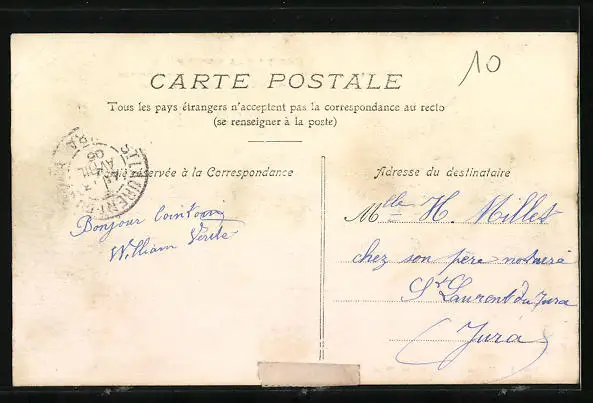 10
CARTE POSTALE
Tous les pays étrangers n'acceptent pas la correspondance au recto
(se renseigner à la poste)
Partie réservée à la Correspondance
Adresse du destinataire
ST LAURENT
AVRIL
06
Bonjour lointain
William
Mlle H. Millet
chez son père notaire
St Laurent du Jura
(Jura)